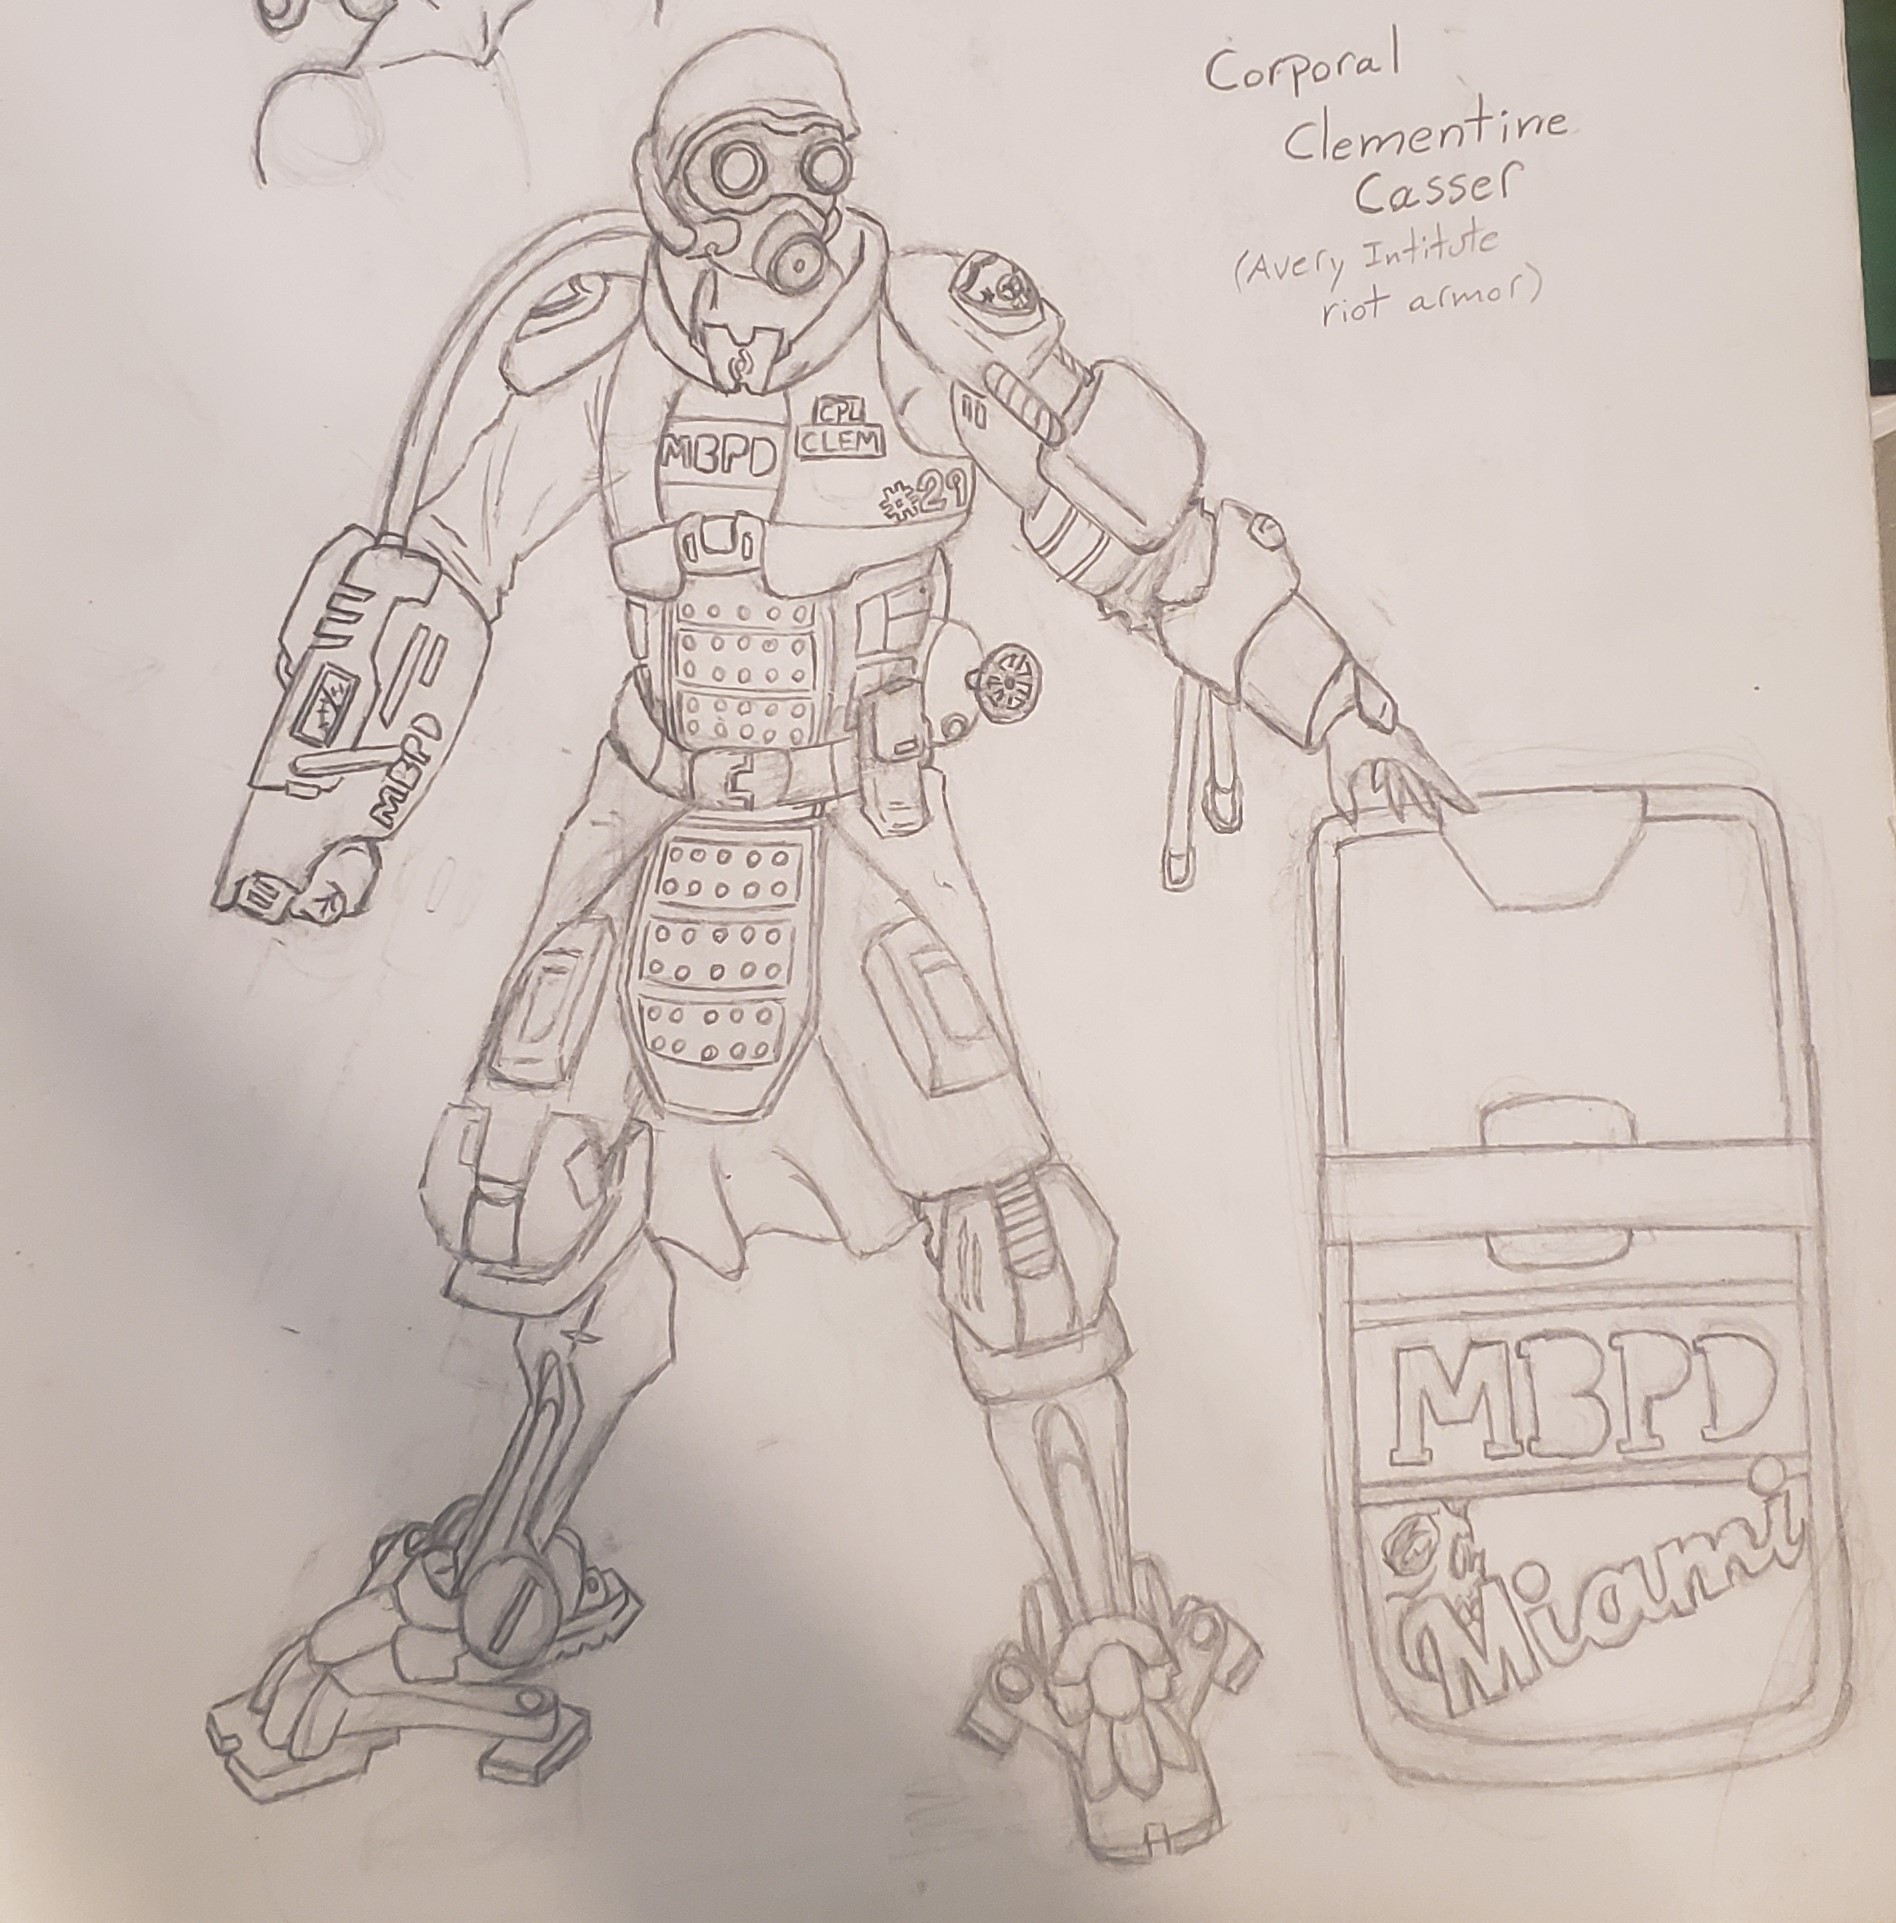 Corporal
Clementine
Casser
(Avery Intitute
riot armor)
CPL
CLEM
MBPD
#29
MBPD
MBPD
Miami